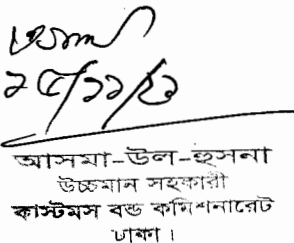 ২৫/১১/২৩
আসমা-উল-হুসনা
উচ্চমান সহকারী
কাস্টমস বন্ড কমিশনারেট
ঢাকা।